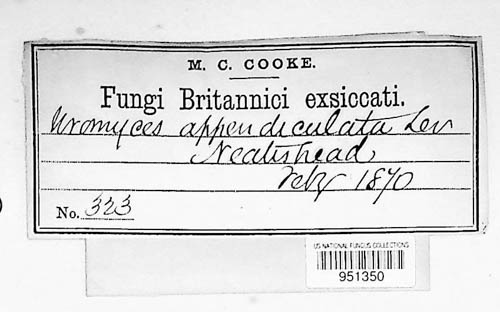 M. C. COOKE.
Fungi Britannici exsiccati.
Uromyces appendiculata Lev
Neatishead
Feby 1870
No. 323
US NATIONAL FUNGUS COLLECTIONS
951350